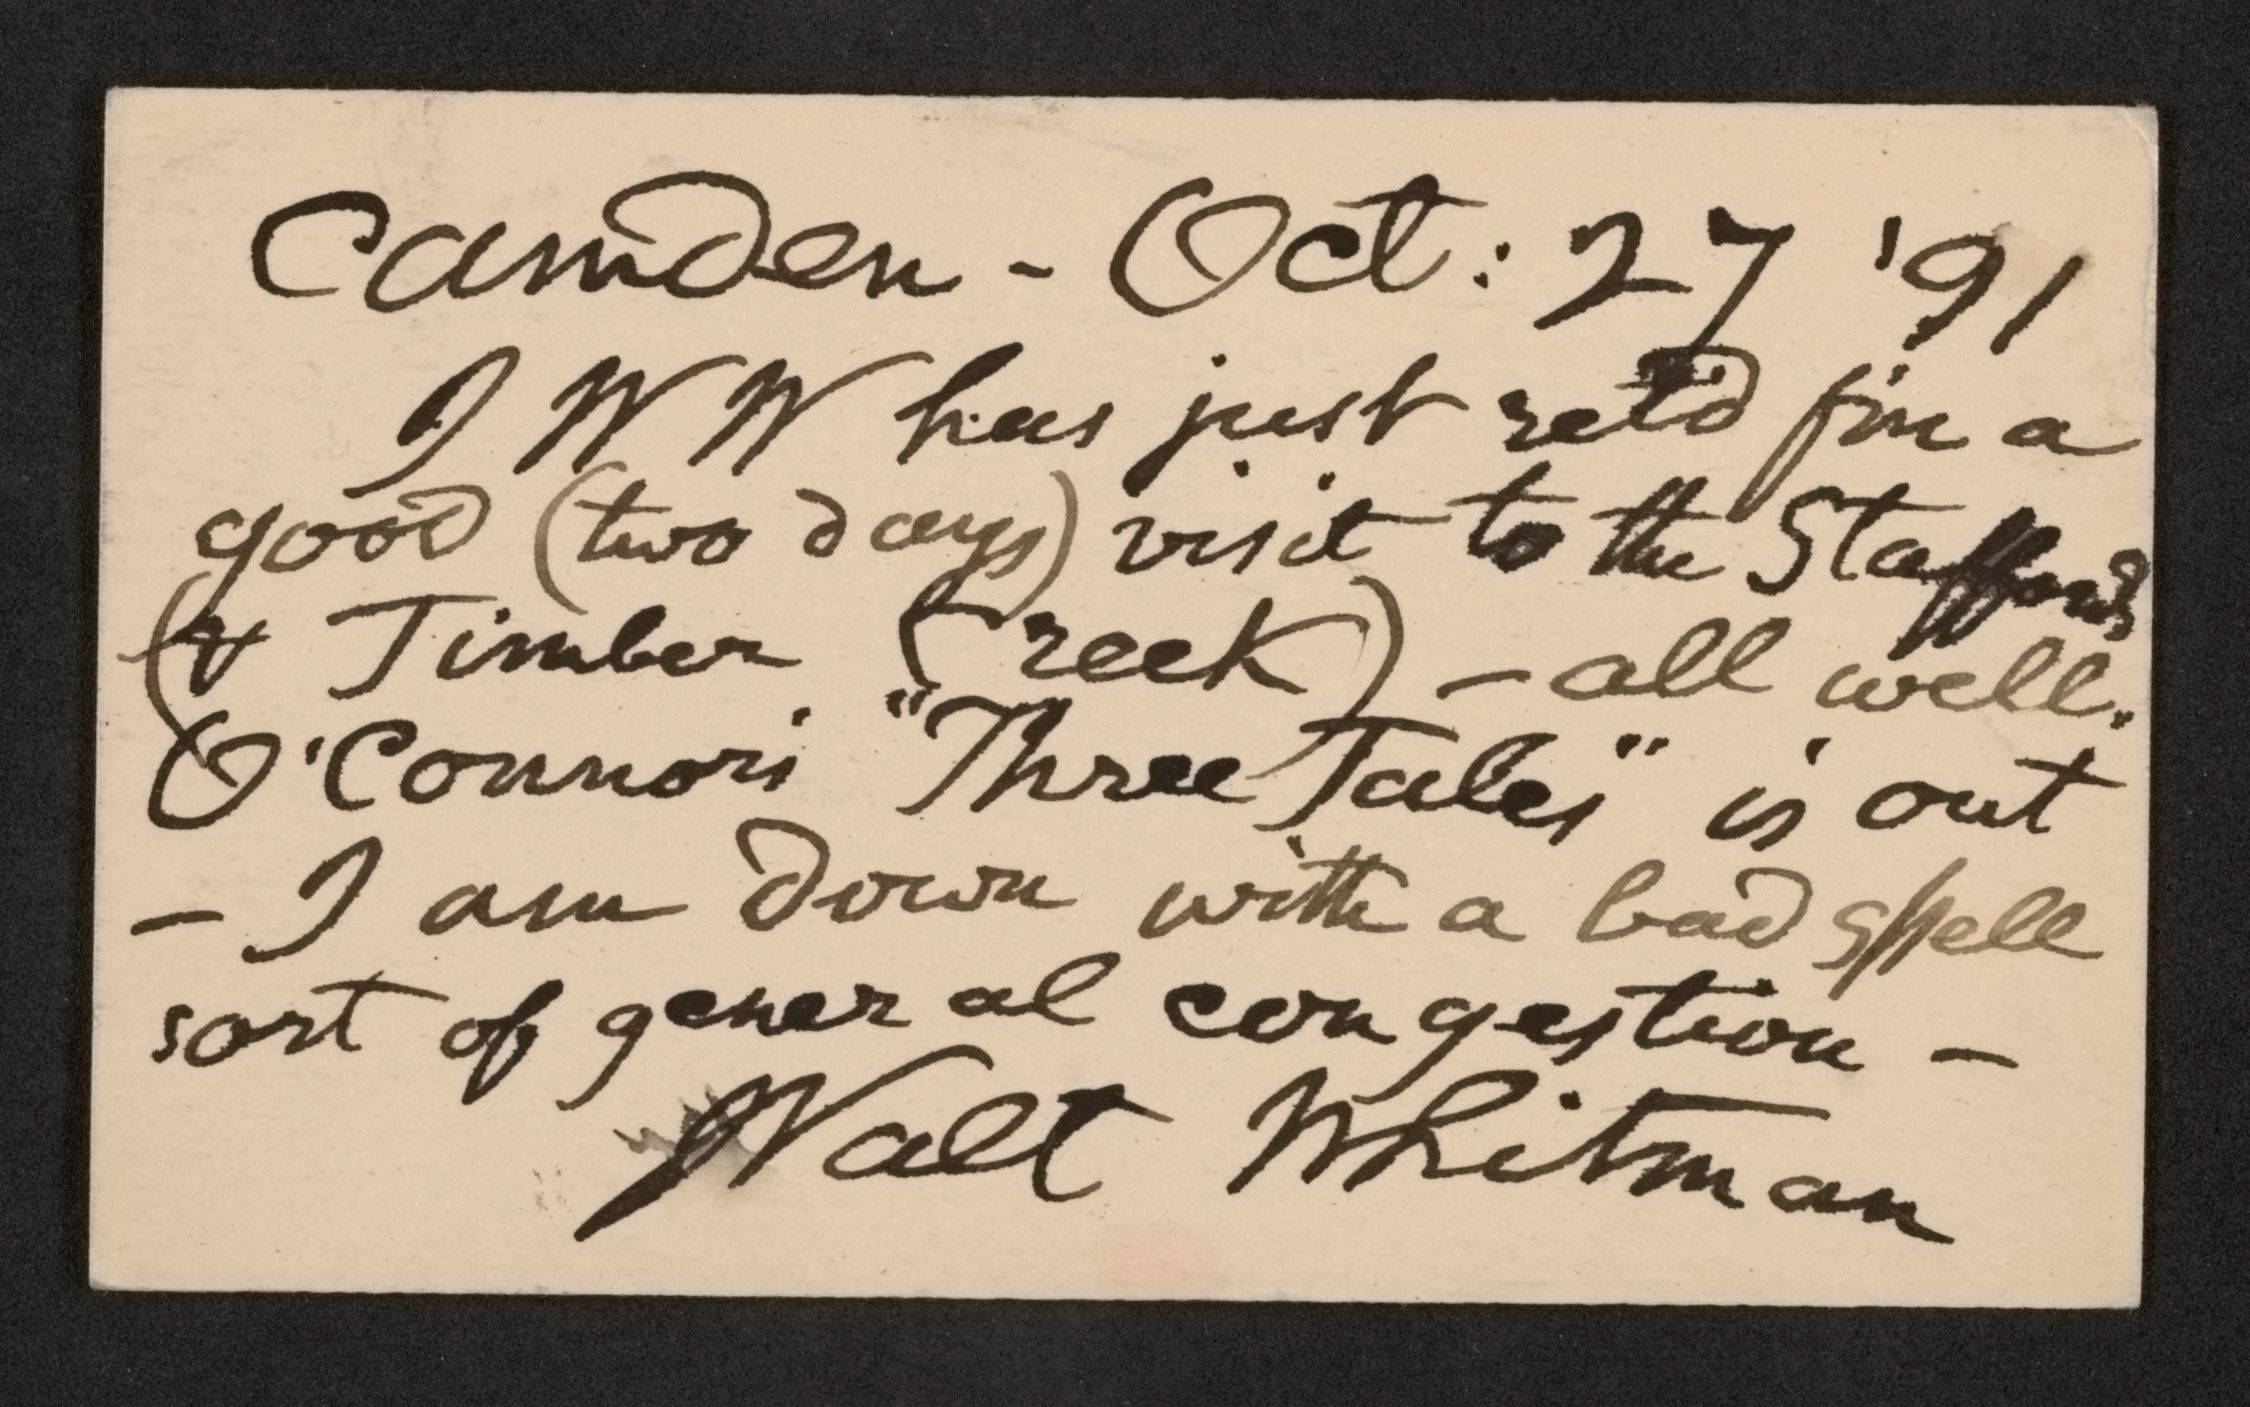 Camden - Oct: 27 '91
J W W has just ret'd f'm a
good (two days) visit to the Staffords
(& Timber Creek) - all well.
O'Connor's "Three Tales" is out
- I am down with a bad spell
sort of general congestion -
Walt Whitman